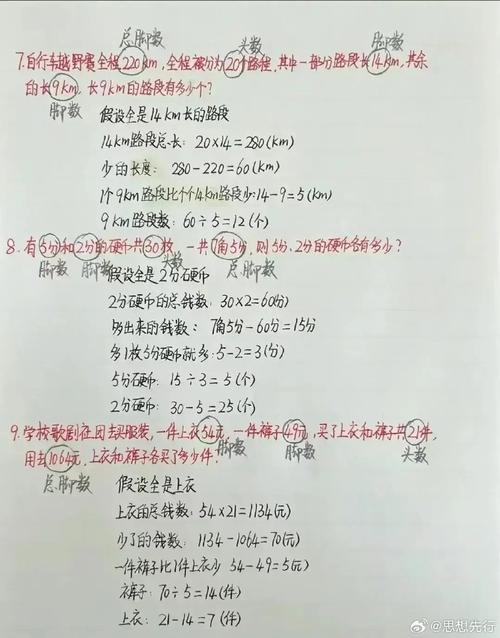 总脚数 头数 脚数
7.自行车越野赛全程220km,全程被分为20个路程,其中一部分路段长14km,其余
的长9km,长9km的路段有多少个?
脚数 假设全是14km长的路段
14km路段总长:20×14=280(km)
少的长度:280-220=60(km)
1个9km路段比个个14km路段少:14-9=5(km)
9km路段数:60÷5=12(个)
8.有5分和2分的硬币共30枚,一共7角5分,则5分、2分的硬币各有多少?
脚数 脚数 头数 总脚数
假设全是2分硬币
2分硬币的总钱数:30×2=60(分)
多出来的钱数:7角5分-60分=15分
多1枚5分硬币就多:5-2=3(分)
5分硬币:15÷3=5(个)
2分硬币:30-5=25(个)
9.学校歌剧社团去买服装,一件上衣54元,一件裤子49元,买了上衣和裤子共21件,
用去1064元,上衣和裤子各买了多少件?
脚数 脚数 头数
总脚数 假设全是上衣
上衣的总钱数:54×21=1134(元)
少了的钱数:1134-1064=70(元)
一件裤子比1件上衣少 54-49=5(元)
裤子:70÷5=14(件)
上衣:21-14=7(件)
@思想先行